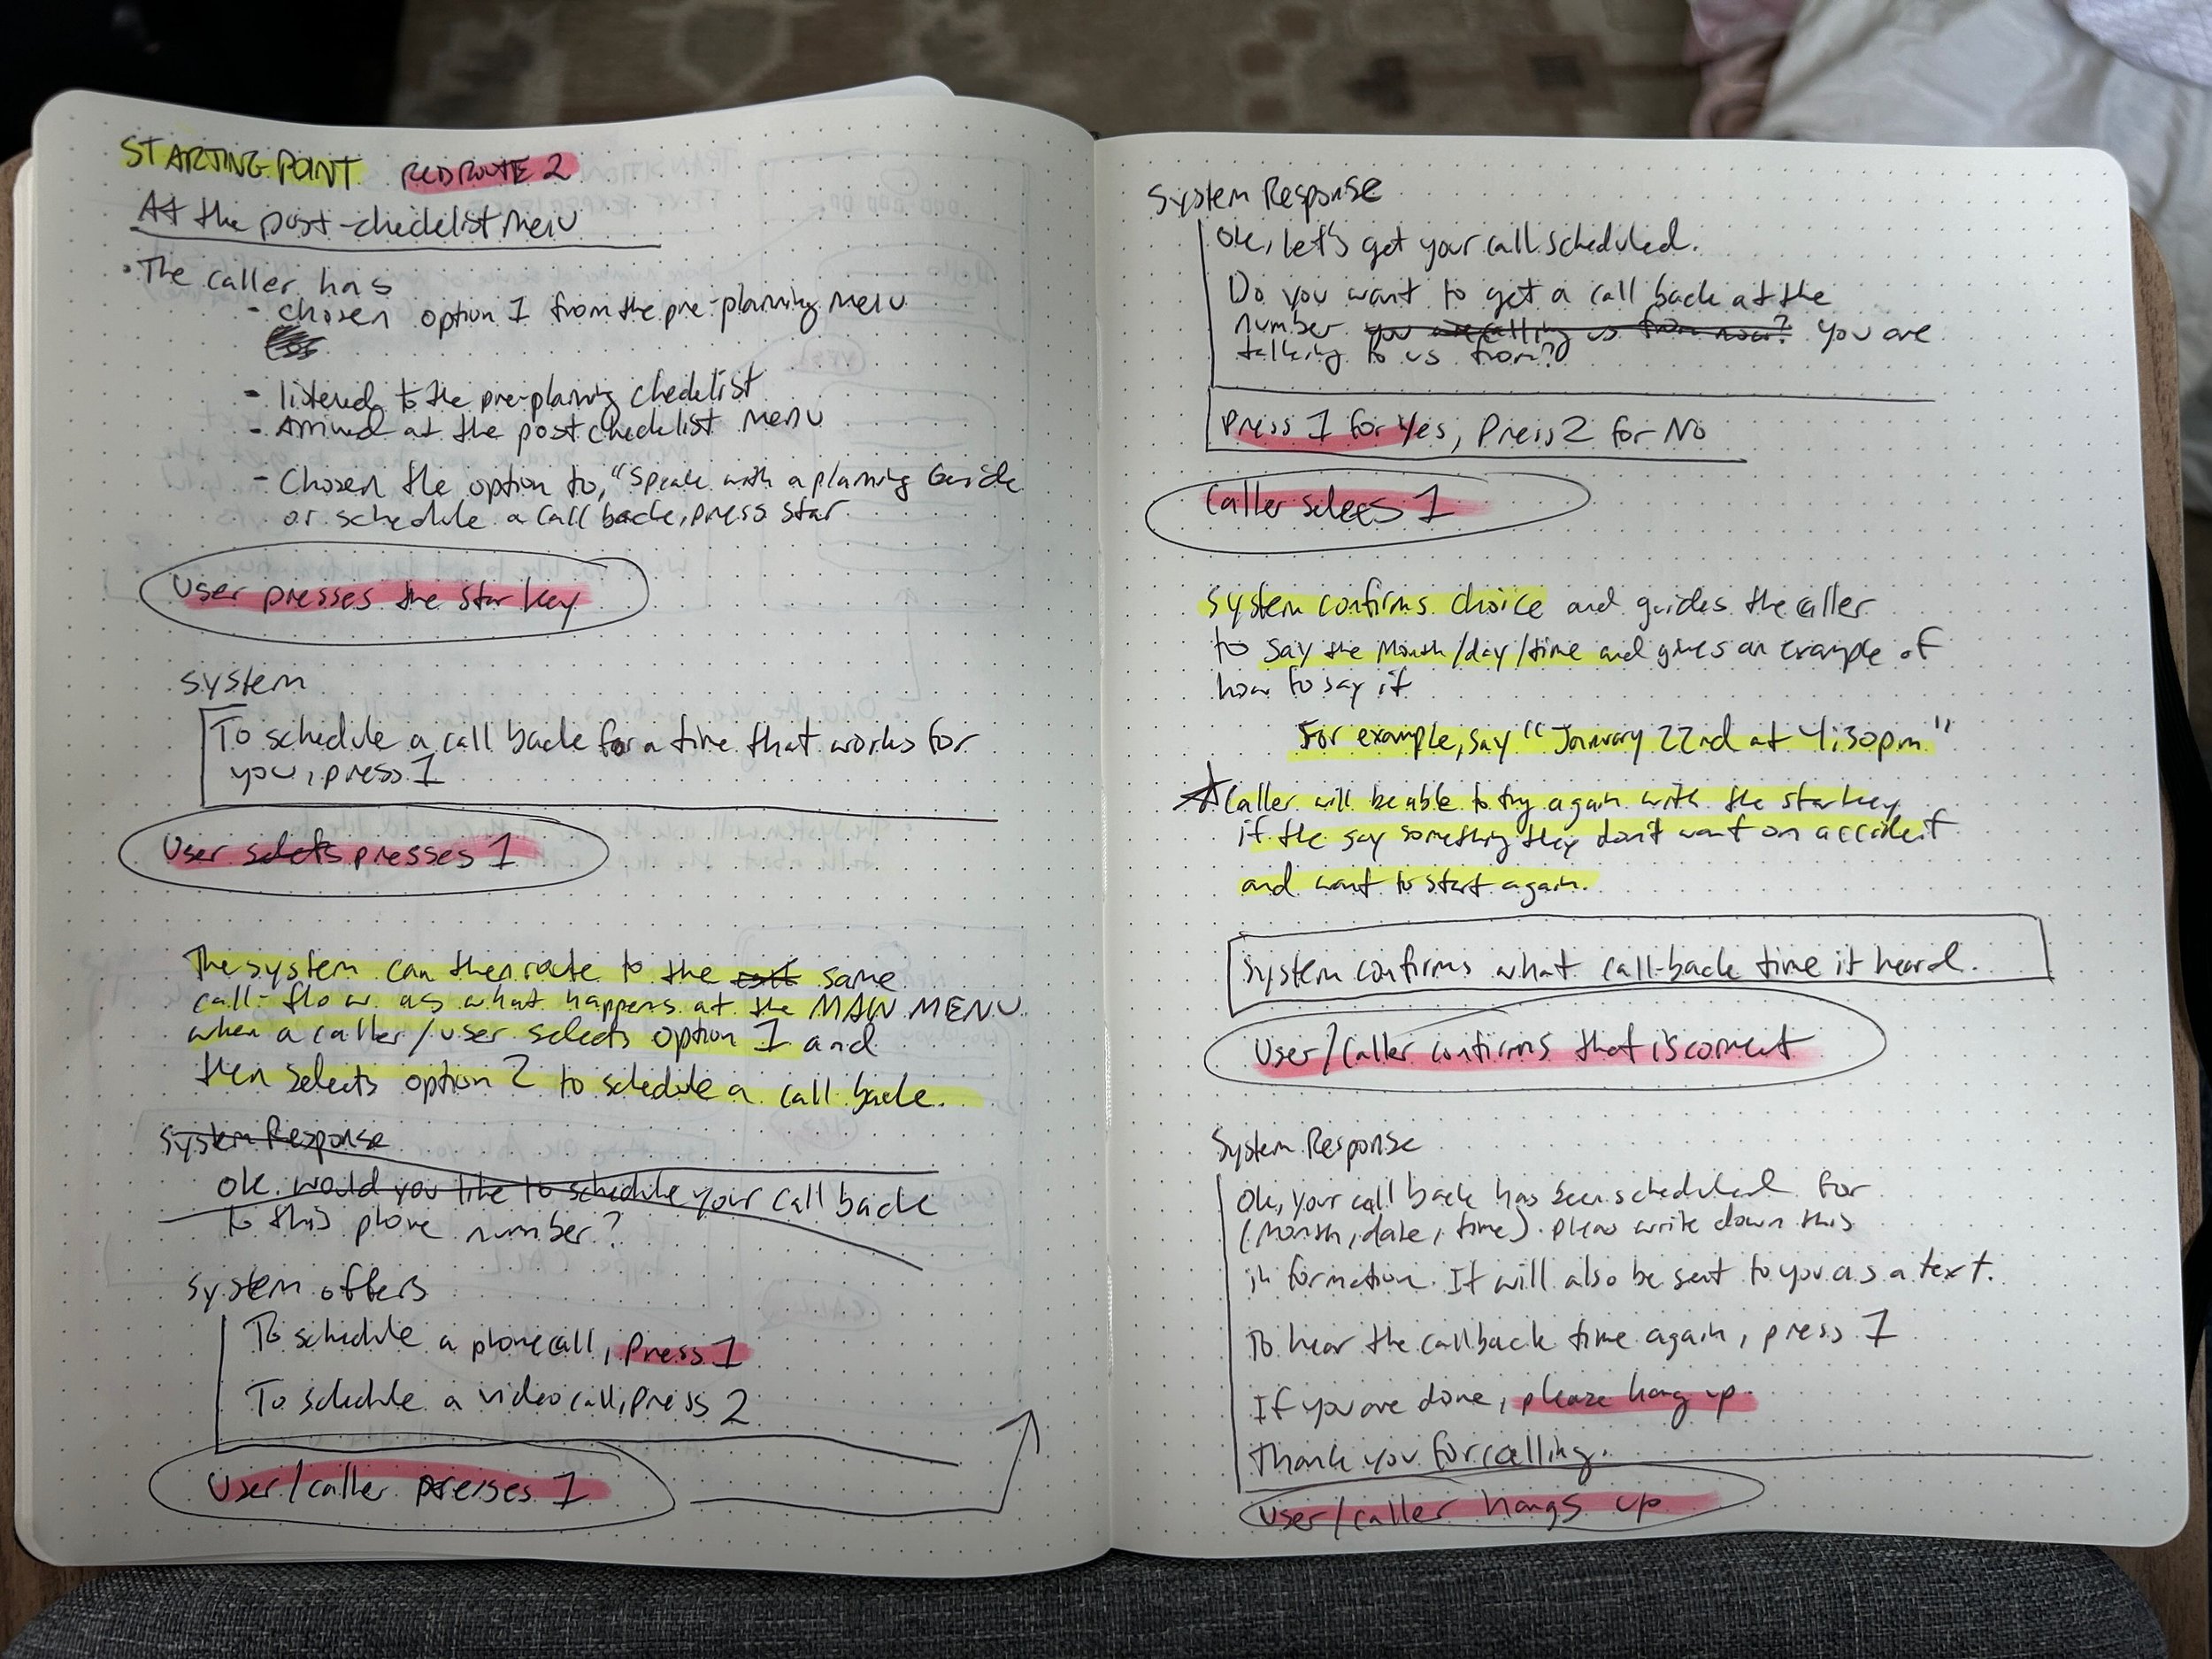 STARTING POINT RED ROUTE 2
At the post-checklist menu
• The caller has
- chosen option 1 from the pre-planning menu
- listened to the pre-planning checklist
- Arrived at the post checklist menu
- Chosen the option to, "Speak with a planning Guide
or schedule a call back, press star
User presses the star key
System
To schedule a call back for a time that works for
you, press 1
User selects presses 1
The system can then route to the same
call-flow as what happens at the MAIN MENU
when a caller/user selects option 1 and
then selects option 2 to schedule a call back.
System Response
Ok. would you like to schedule your call back
to this phone number?
System offers
To schedule a phone call, Press 1
To schedule a video call, press 2
User/caller presses 1
System Response
Ok, let's get your call scheduled.
Do you want to get a call back at the
number you are calling us from now? you are
talking to us from?
Press 1 for Yes, Press 2 for No
Caller selects 1
System confirms choice and guides the caller
to say the Month/day/time and gives an example of
how to say it
For example, say "January 22nd at 4:30pm."
☆ Caller will be able to try again with the star key
if the say something they don't want on accident
and want to start again.
System confirms what call-back time it heard.
User/Caller confirms that is correct
System Response
Ok, your call back has been scheduled for
(Month, date, time). please write down this
information. It will also be sent to you as a text.
To hear the callback time again, press 1
If you are done, please hang up.
Thank you for calling.
User/caller hangs up